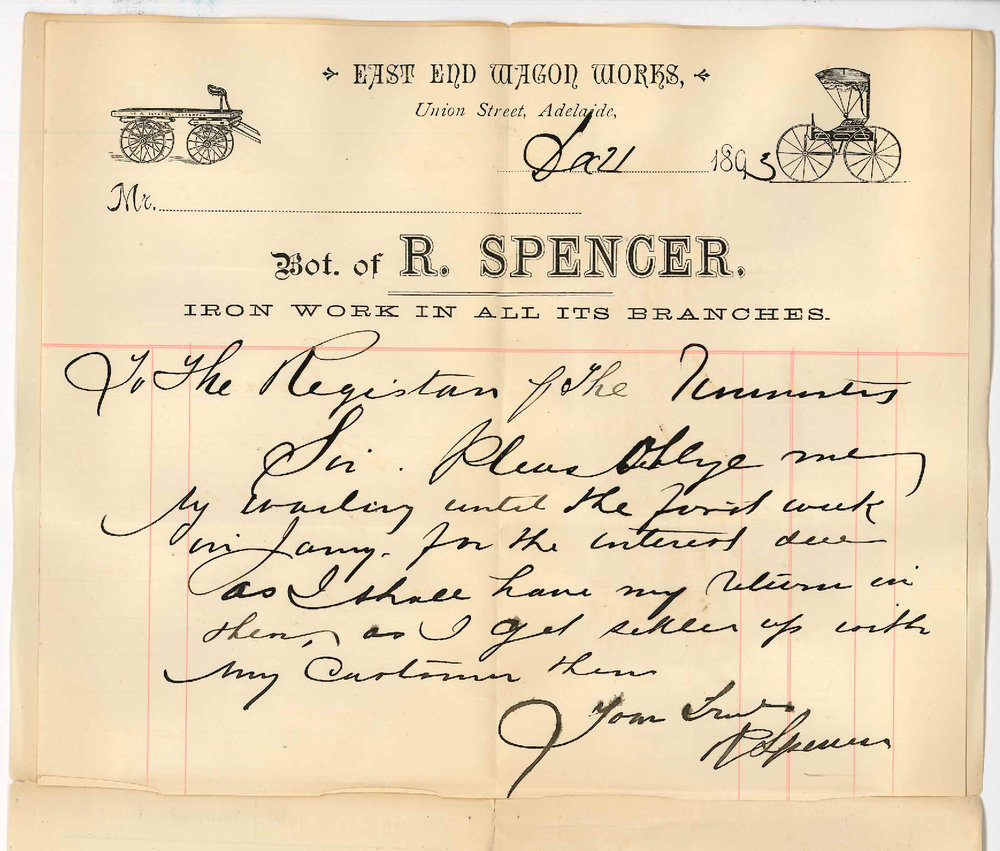 EAST END WAGON WORKS,
Union Street, Adelaide,
1893
Mr.
Bot. of R. SPENCER.
IRON WORK IN ALL ITS BRANCHES.
To The Registar of The
Sir. Pleas Oblige me
by waiting until the first week
in Jany. for the interest due
as I shall have my return in
then, as I get settler up with
my Customer then
Your Truly
R Spencer